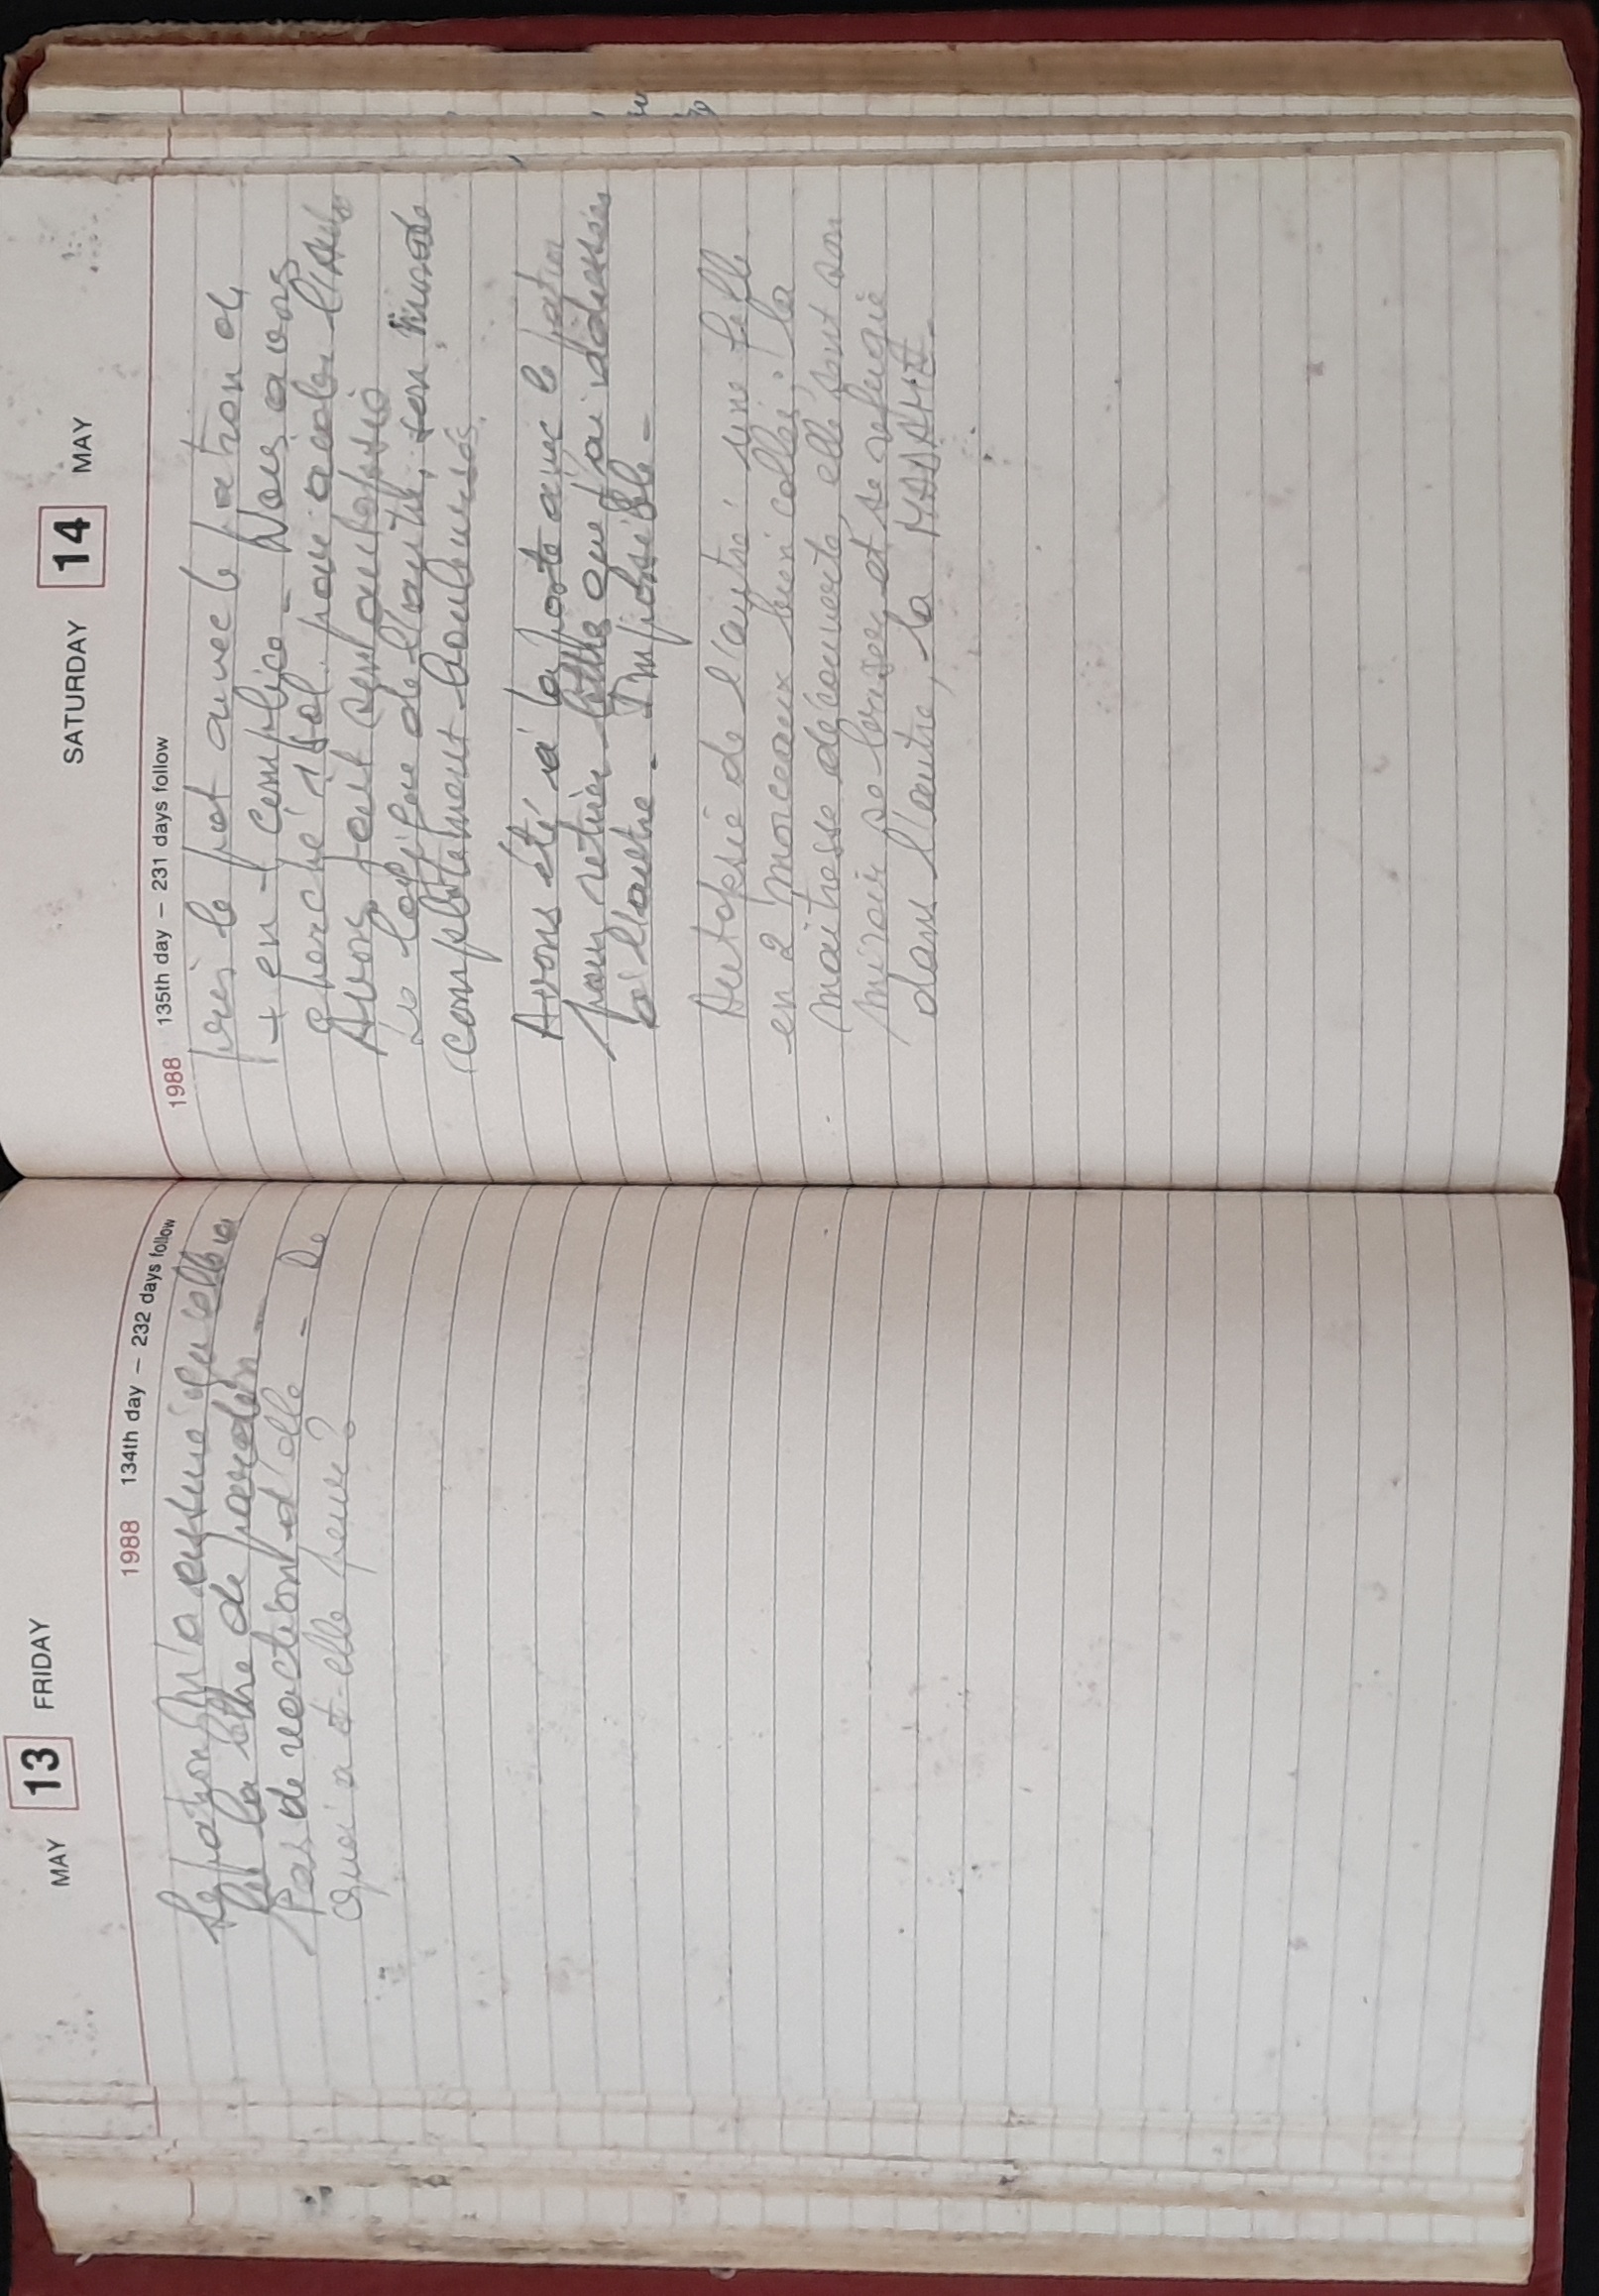 MAY 13 FRIDAY
1988 134th day – 232 days follow
Le patron m'a estimé qu'elle a
lu la lettre de pardon –
Pas de réaction d'elle – De
quoi a t-elle peur ?
SATURDAY 14 MAY
1988 135th day – 231 days follow
pris le pot avec le patron de
+ en + complice – Nous avons
cherché 1 sol. pour aider l'autre
Avons fait son autopsie
La logique de l'autre, son monde
complètement bouleversés.
Avons été à la poste avec le patron
pour retirer lettre que j'ai adressée
à l'autre – Impossible –
Autopsie de l'autre : une fille
en 2 morceaux bien collés : la
maitresse découverte, elle sent son
miroir se briser et se réfugie
dans l'autre, la MADAME –